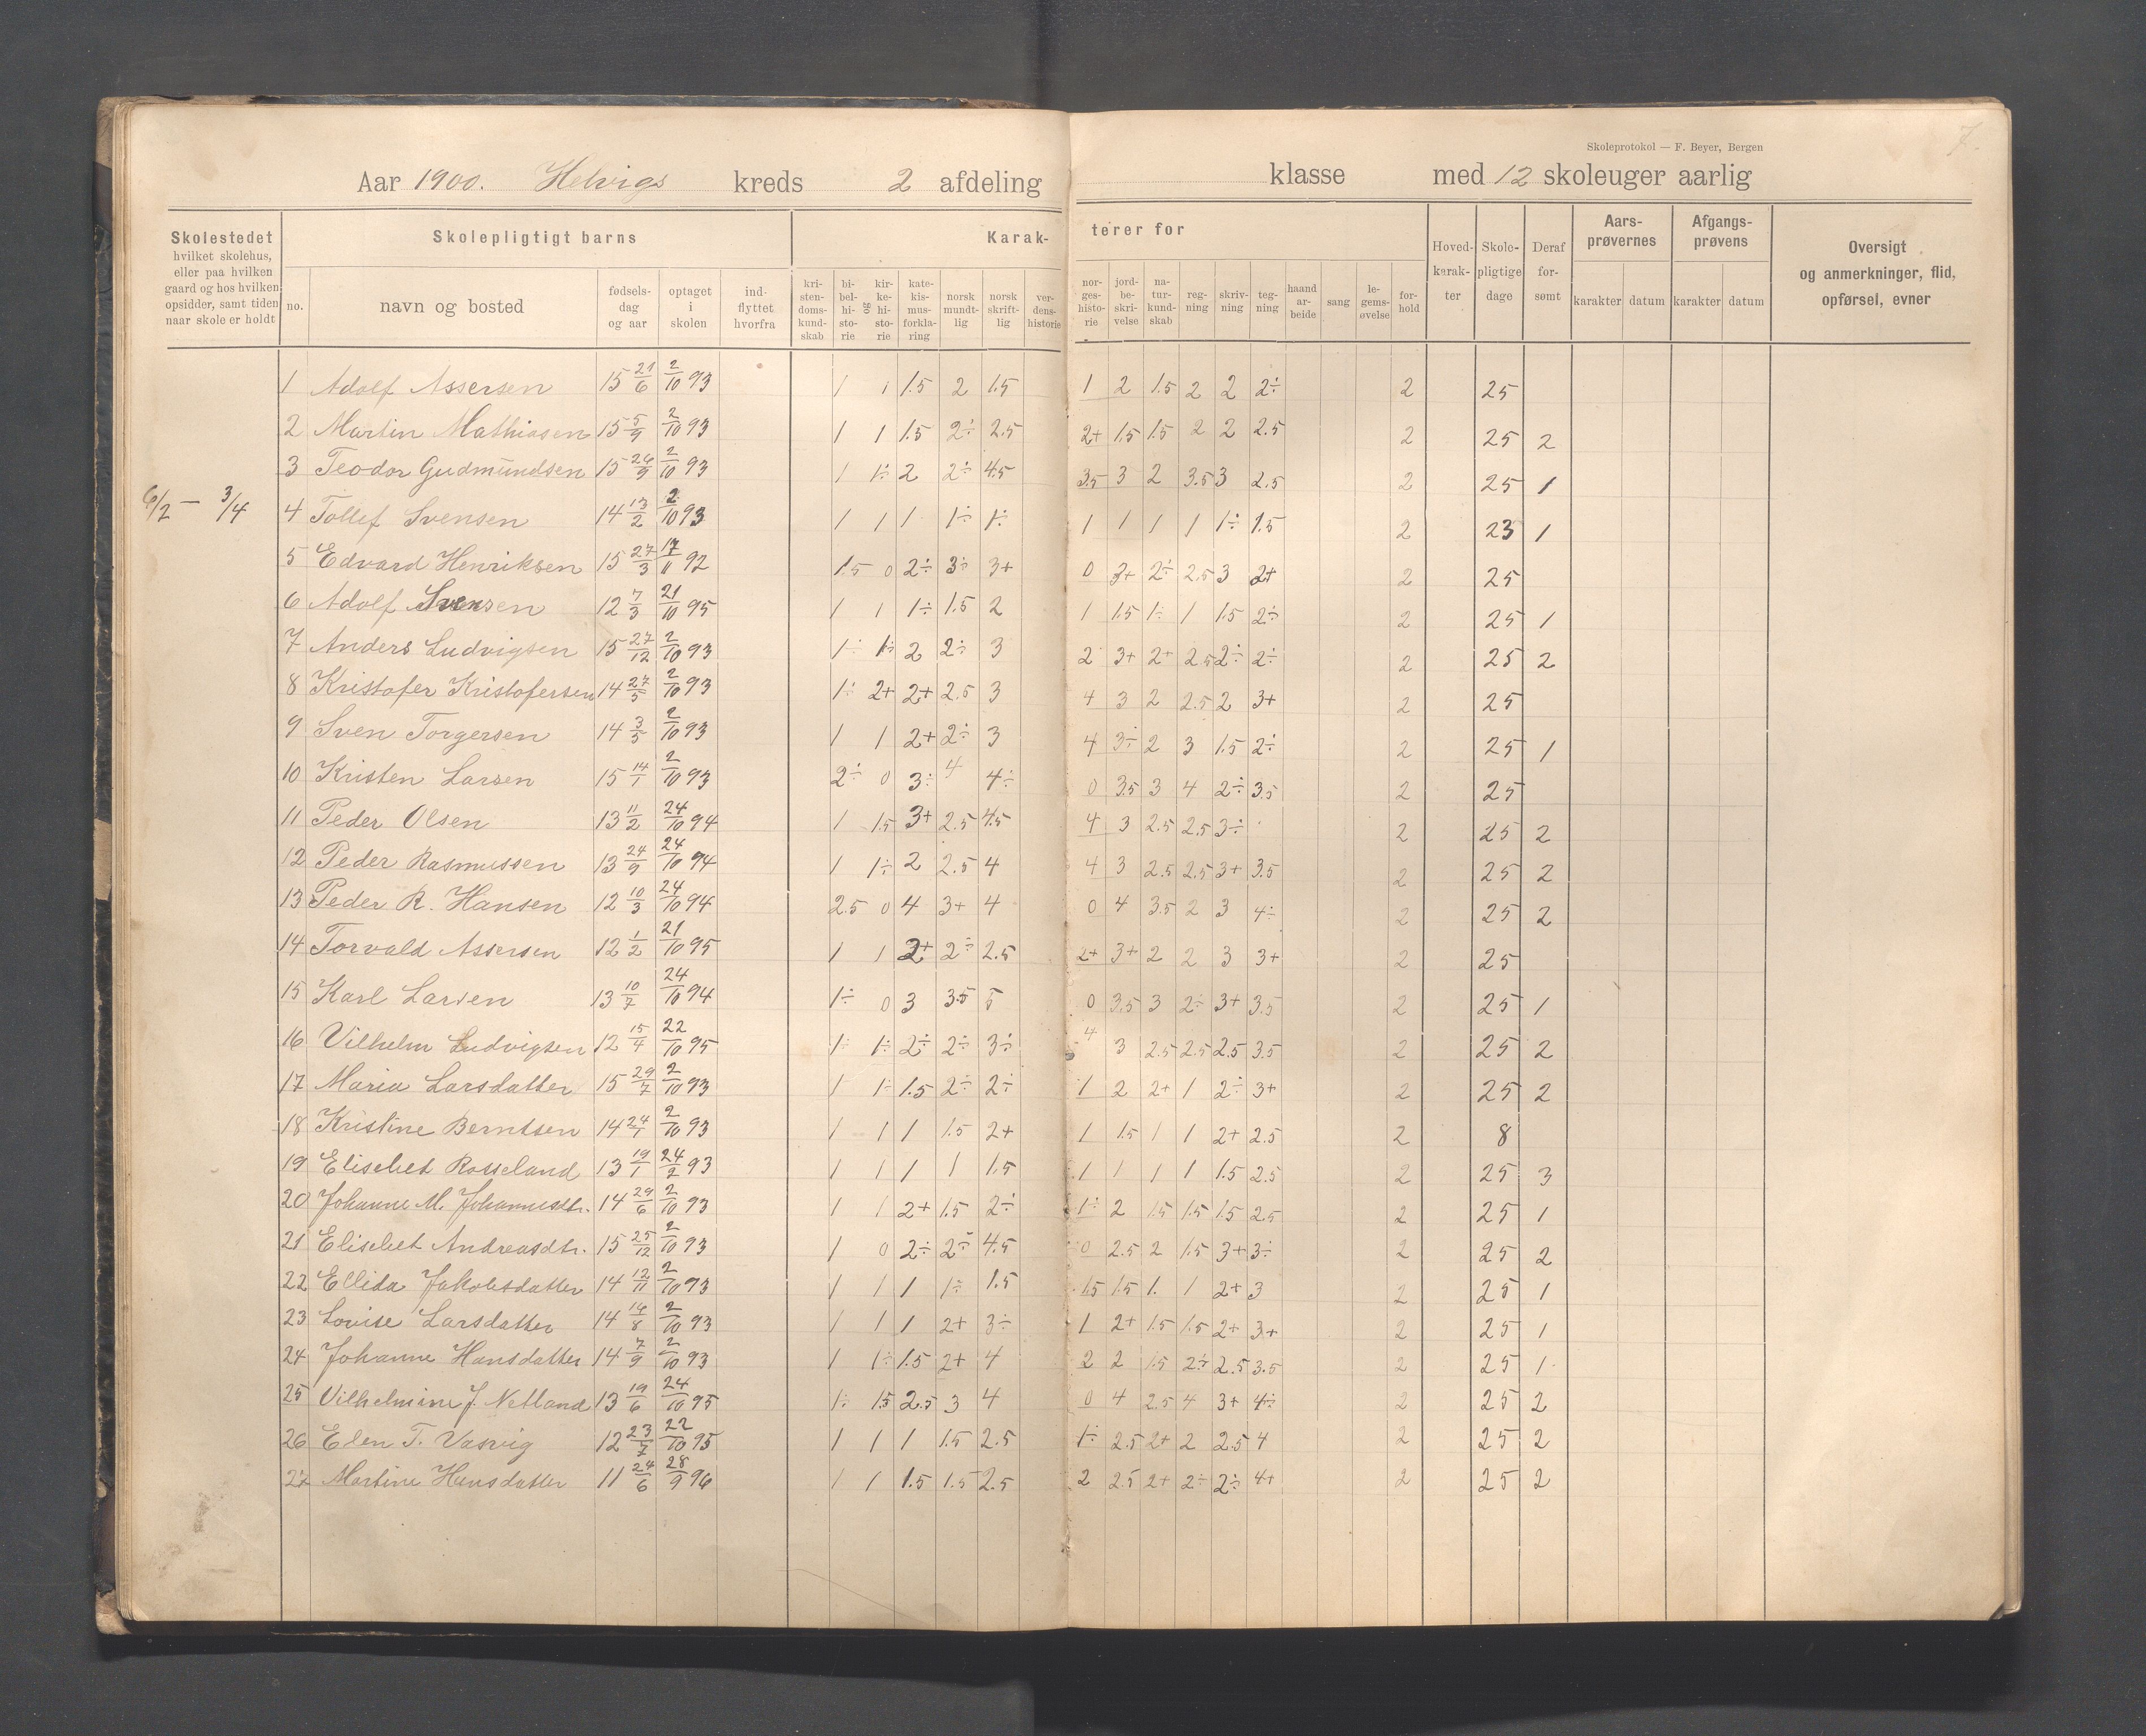 7.
Skoleprotokol — F. Beyer, Bergen
Aar 1900. Helvigs kreds 2 afdeling klasse med 12 skoleuger aarlig
Skolestedet hvilket skolehus, eller paa hvilken gaard og hos hvilken opsidder, samt tiden naar skole er holdt
Skolepligtigt barns
no. navn og bosted fødsels-dag og aar optaget i skolen ind-flyttet hvorfra
Karak-terer for
kri-sten-doms-kund-skab bi-bel-hi-sto-rie og kir-ke-hi-sto-rie kate-kis-mus-forkla-ring norsk mundt-lig norsk skrift-lig ver-dens-historie nor-ges-histo-rie jord-be-skri-velse na-tur-kund-skab reg-ning skriv-ning teg-ning haand ar-beide sang le-gems-øvelse for-hold
Hoved-karak-ter Skole-pligtige dage Deraf for-sømt
Aars-prøvernes karakter datum
Afgangs-prøvens karakter datum
Oversigt og anmerkninger, flid, opførsel, evner
6/2 — 3/4
1 Adolf Assersen 15 21/6 2/10 93 1 1 1.5 2 1.5 1 2 1.5 2 2 2÷ 2 25
2 Martin Mathiasen 15 5/9 2/10 93 1 1 1.5 2÷ 2.5 2+ 1.5 1.5 2 2 2.5 2 25 2
3 Teodor Gudmundsen 15 26/9 2/10 93 1 1÷ 2 2÷ 4.5 3.5 3 2 3.5 3 2.5 2 25 1
4 Tollef Svensen 14 13/2 2/10 93 1 1 1 1÷ 1÷ 1 1 1 1 1÷ 1.5 2 23 1
5 Edvard Henriksen 15 27/3 17/11 92 1.5 0 2÷ 3÷ 3+ 0 3+ 2÷ 2.5 3 2+ 2 25
6 Adolf Svensen 12 7/3 21/10 95 1 1 1÷ 1.5 2 1 1.5 1÷ 1 1.5 2÷ 2 25 1
7 Anders Ludvigsen 15 27/12 2/10 93 1÷ 1÷ 2 2÷ 3 2 3+ 2+ 2.5 2÷ 2÷ 2 25 2
8 Kristofer Kristofersen 14 27/5 2/10 93 1÷ 2+ 2+ 2.5 3 4 3 2 2.5 2 3+ 2 25
9 Sven Torgersen 14 3/5 2/10 93 1 1 2+ 2÷ 3 4 3÷ 2 3 1.5 2÷ 2 25 1
10 Kristen Larsen 15 14/1 2/10 93 2÷ 0 3÷ 4 4÷ 0 3.5 3 4 2÷ 3.5 2 25
11 Peder Olsen 13 11/2 24/10 94 1 1.5 3+ 2.5 4.5 4 3 2.5 2.5 3÷ 2 25 2
12 Peder Rasmussen 13 24/9 24/10 94 1 1÷ 2 2.5 4 4 3 2.5 2.5 3+ 3.5 2 25 2
13 Peder R. Hansen 12 10/3 24/10 94 2.5 0 4 3+ 4 0 4 3.5 2 3 4÷ 2 25 2
14 Torvald Assersen 12 1/2 21/10 95 1 1 2+ 2÷ 2.5 2+ 3+ 2 2 3 3+ 2 25
15 Karl Larsen 13 10/7 24/10 94 1÷ 0 3 3.5 5 0 3.5 3 2÷ 3+ 3.5 2 25 1
16 Vilhelm Ludvigsen 12 15/4 22/10 95 1÷ 1÷ 2÷ 2÷ 3÷ 4 3 2.5 2.5 2.5 3.5 2 25 2
17 Maria Larsdatter 15 29/7 2/10 93 1 1÷ 1.5 2÷ 2÷ 1 2 2+ 1 2÷ 3+ 2 25 2
18 Kristine Berntsen 14 24/1 2/10 93 1 1 1 1.5 2+ 1 1.5 1 1 2+ 2.5 2 8
19 Elisebet Rosseland 13 19/1 24/2 93 1 1 1 1 1.5 1 1 1 1 1.5 2.5 2 25 3
20 Johanne M. Johannesdtr. 14 29/6 2/10 93 1 1 2+ 1.5 2÷ 1÷ 2 1.5 1.5 1.5 2.5 2 25 1
21 Elisebet Andreasdtr. 15 25/12 2/10 93 1 0 2÷ 2÷ 4.5 0 2.5 2 1.5 3+ 3÷ 2 25 2
22 Ellida Jakobsdatter 14 12/11 2/10 93 1 1 1 1÷ 1.5 1.5 1.5 1. 1 2+ 3 2 25 1
23 Lovise Larsdatter 14 14/8 2/10 93 1 1 1 2+ 3÷ 1 2+ 1.5 1.5 2+ 3+ 2 25 1
24 Johanne Hansdatter 14 7/9 2/10 93 1 1÷ 1.5 2+ 4 2 2 1.5 2÷ 2.5 3.5 2 25 1
25 Vilhelmine J. Netland 13 19/6 24/10 95 1÷ 1.5 2.5 3 4 0 4 2.5 4 3+ 4÷ 2 25 2
26 Elen T. Vasvig 12 23/7 22/10 95 1 1 1 1.5 2.5 1÷ 2.5 2+ 2 2.5 4 2 25 2
27 Martine Hansdatter 11 24/6 28/9 96 1 1 1.5 1.5 2.5 2 2.5 2+ 2÷ 2÷ 4+ 2 25 2